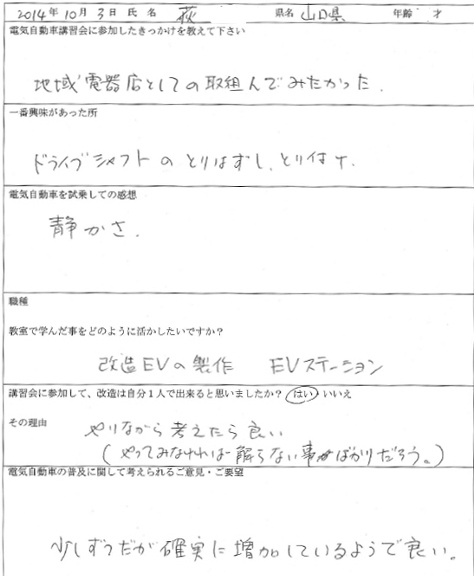 2014年10月3日 氏名 萩 県名 山口県 年齢 才
電気自動車講習会に参加したきっかけを教えて下さい
地域電器店としての取組んでみたかった.
一番興味があった所
ドライブシャフトのとりはずし、とり付け.
電気自動車を試乗しての感想
静かさ.
職種
教室で学んだ事をどのように活かしたいですか?
改造EVの製作 EVステーション
講習会に参加して、改造は自分1人で出来ると思いましたか? はい いいえ
その理由 やりながら考えたら良い
(やってみなければ解らない事がばかりだろう。)
電気自動車の普及に関して考えられるご意見・ご要望
少しずつだが確実に増加しているようで良い。